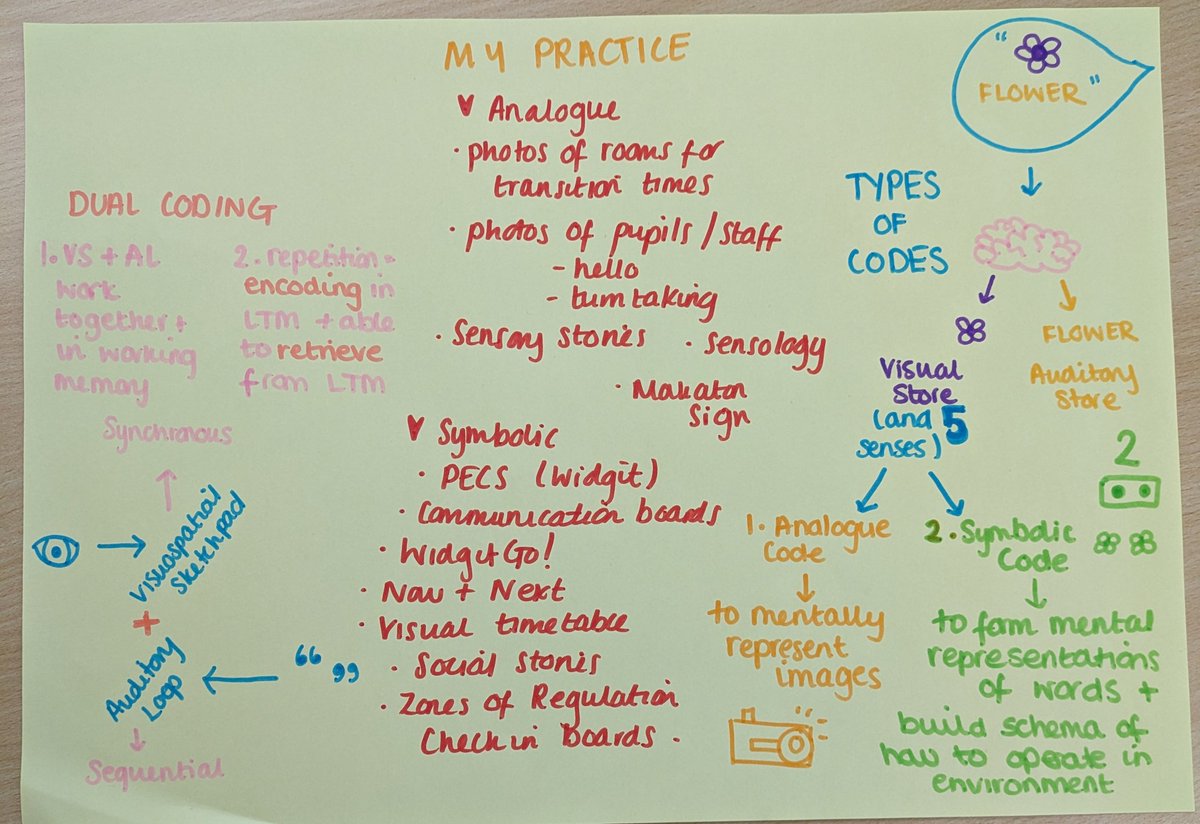 MY PRACTICE
Analogue
· photos of rooms for
transition times
· photos of pupils / staff
- hello
- turn taking
· Sensory stories
· sensology
· Makaton
Sign
Symbolic
· PECS (Widgit)
· Communication boards
· Widgit Go!
· Now + Next
· Visual timetable
· Social stories
· Zones of Regulation
Check in boards .
DUAL CODING
1. VS + AL
work
together +
in working
memory
2. repetition =
encoding in
LTM + able
to retrieve
from LTM
Synchronous
Visuospatial
Sketchpad
+
Auditory
Loop
“ ”
Sequential
“
FLOWER ”
TYPES
OF
CODES
FLOWER
Visual
Store
(and 5
senses)
Auditory
Store
2
1. Analogue
Code
to mentally
represent
images
2. Symbolic
Code
to form mental
representations
of words +
build schema of
how to operate in
environment